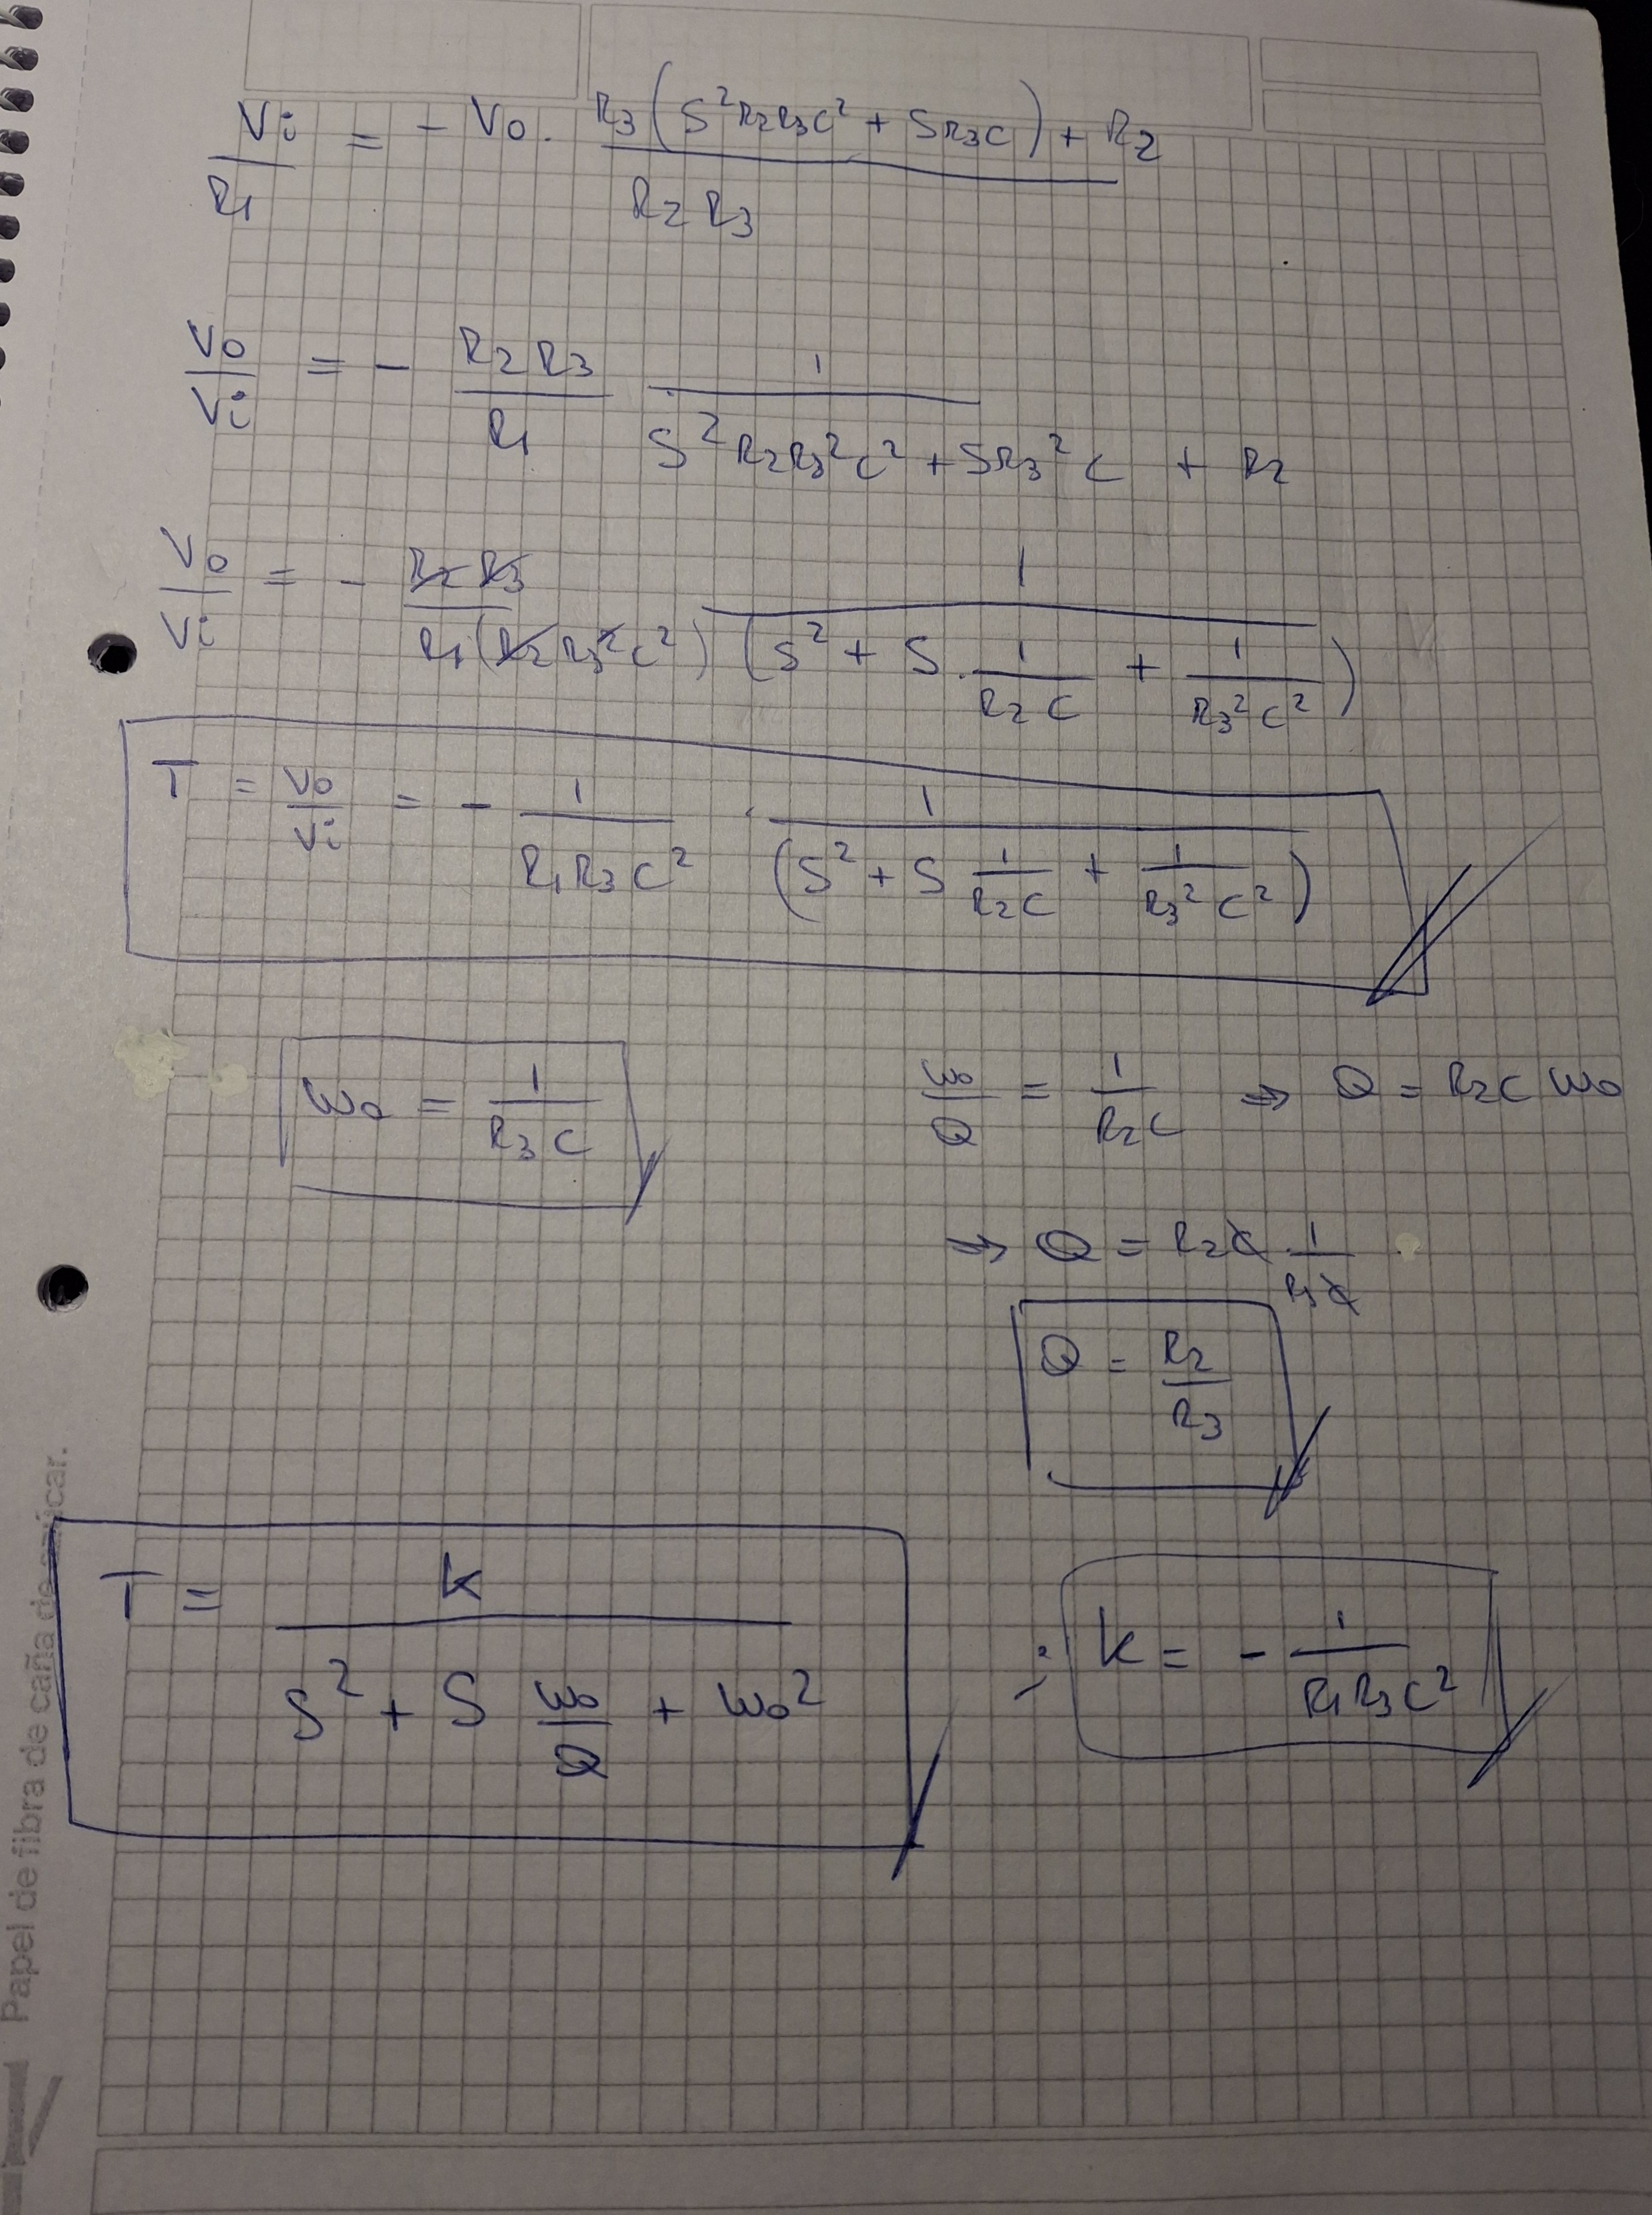 Vi/R1 = - Vo . (R3 (S²R2R3C² + SR3C) + R2)/(R2 R3)
Vo/Vi = - (R2 R3)/R1 1/(S² R2R3²C² + SR3²C + R2)
Vo/Vi = - (R2 R3)/(R1(R2R3²C²)) 1/(S² + S . 1/(R2 C) + 1/(R3² C²))
T = Vo/Vi = - 1/(R1R3C²) . 1/(S² + S 1/(R2C) + 1/(R3² C²))
ω0 = 1/(R3 C)
ω0/Q = 1/(R2C) ⇒ Q = R2C ω0
⇒ Q = R2C . 1/(R3C)
Q = R2/R3
T = k/(S² + S ω0/Q + ω0²) ; k = - 1/(R1R3C²)
Papel de fibra de caña de azúcar.